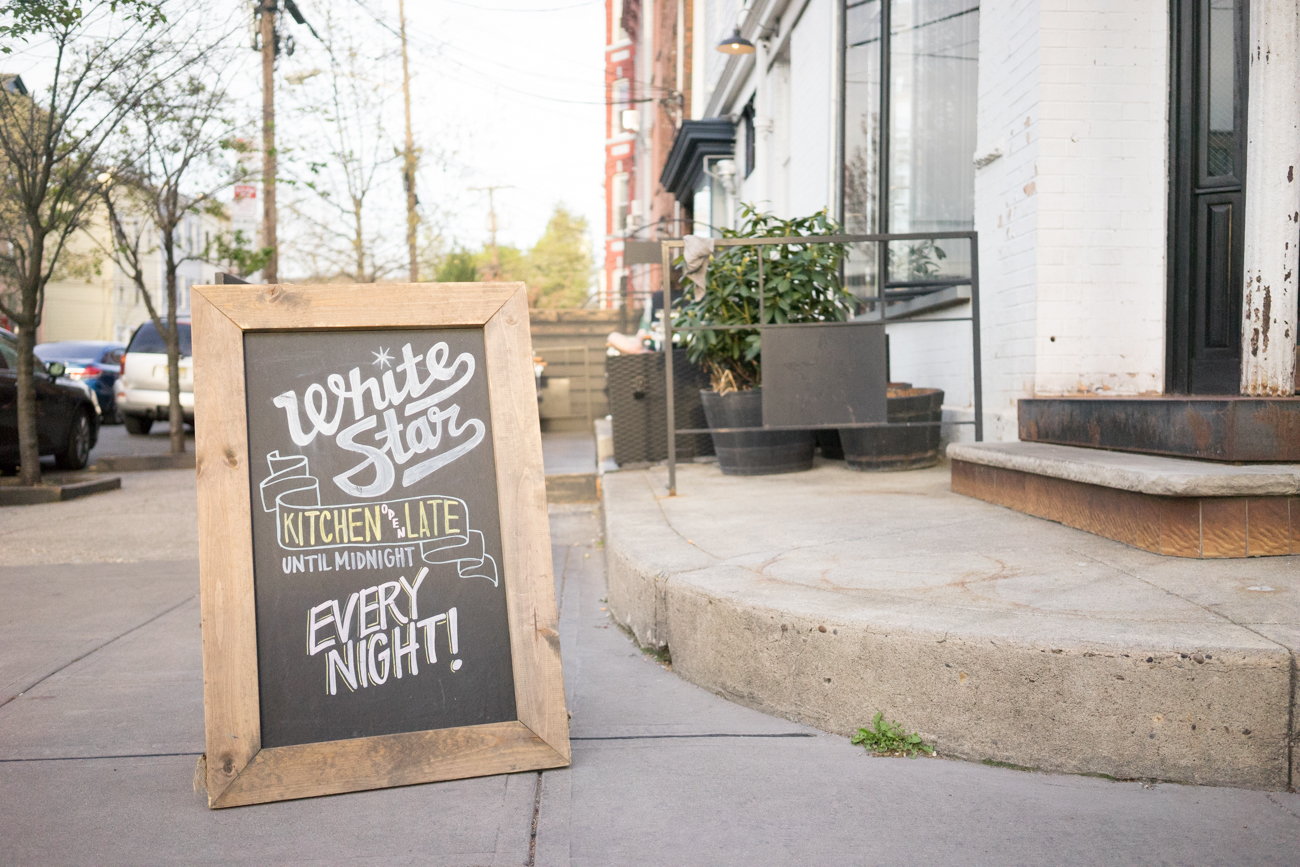 White
Star
KITCHEN OPEN LATE
UNTIL MIDNIGHT
EVERY
NIGHT!